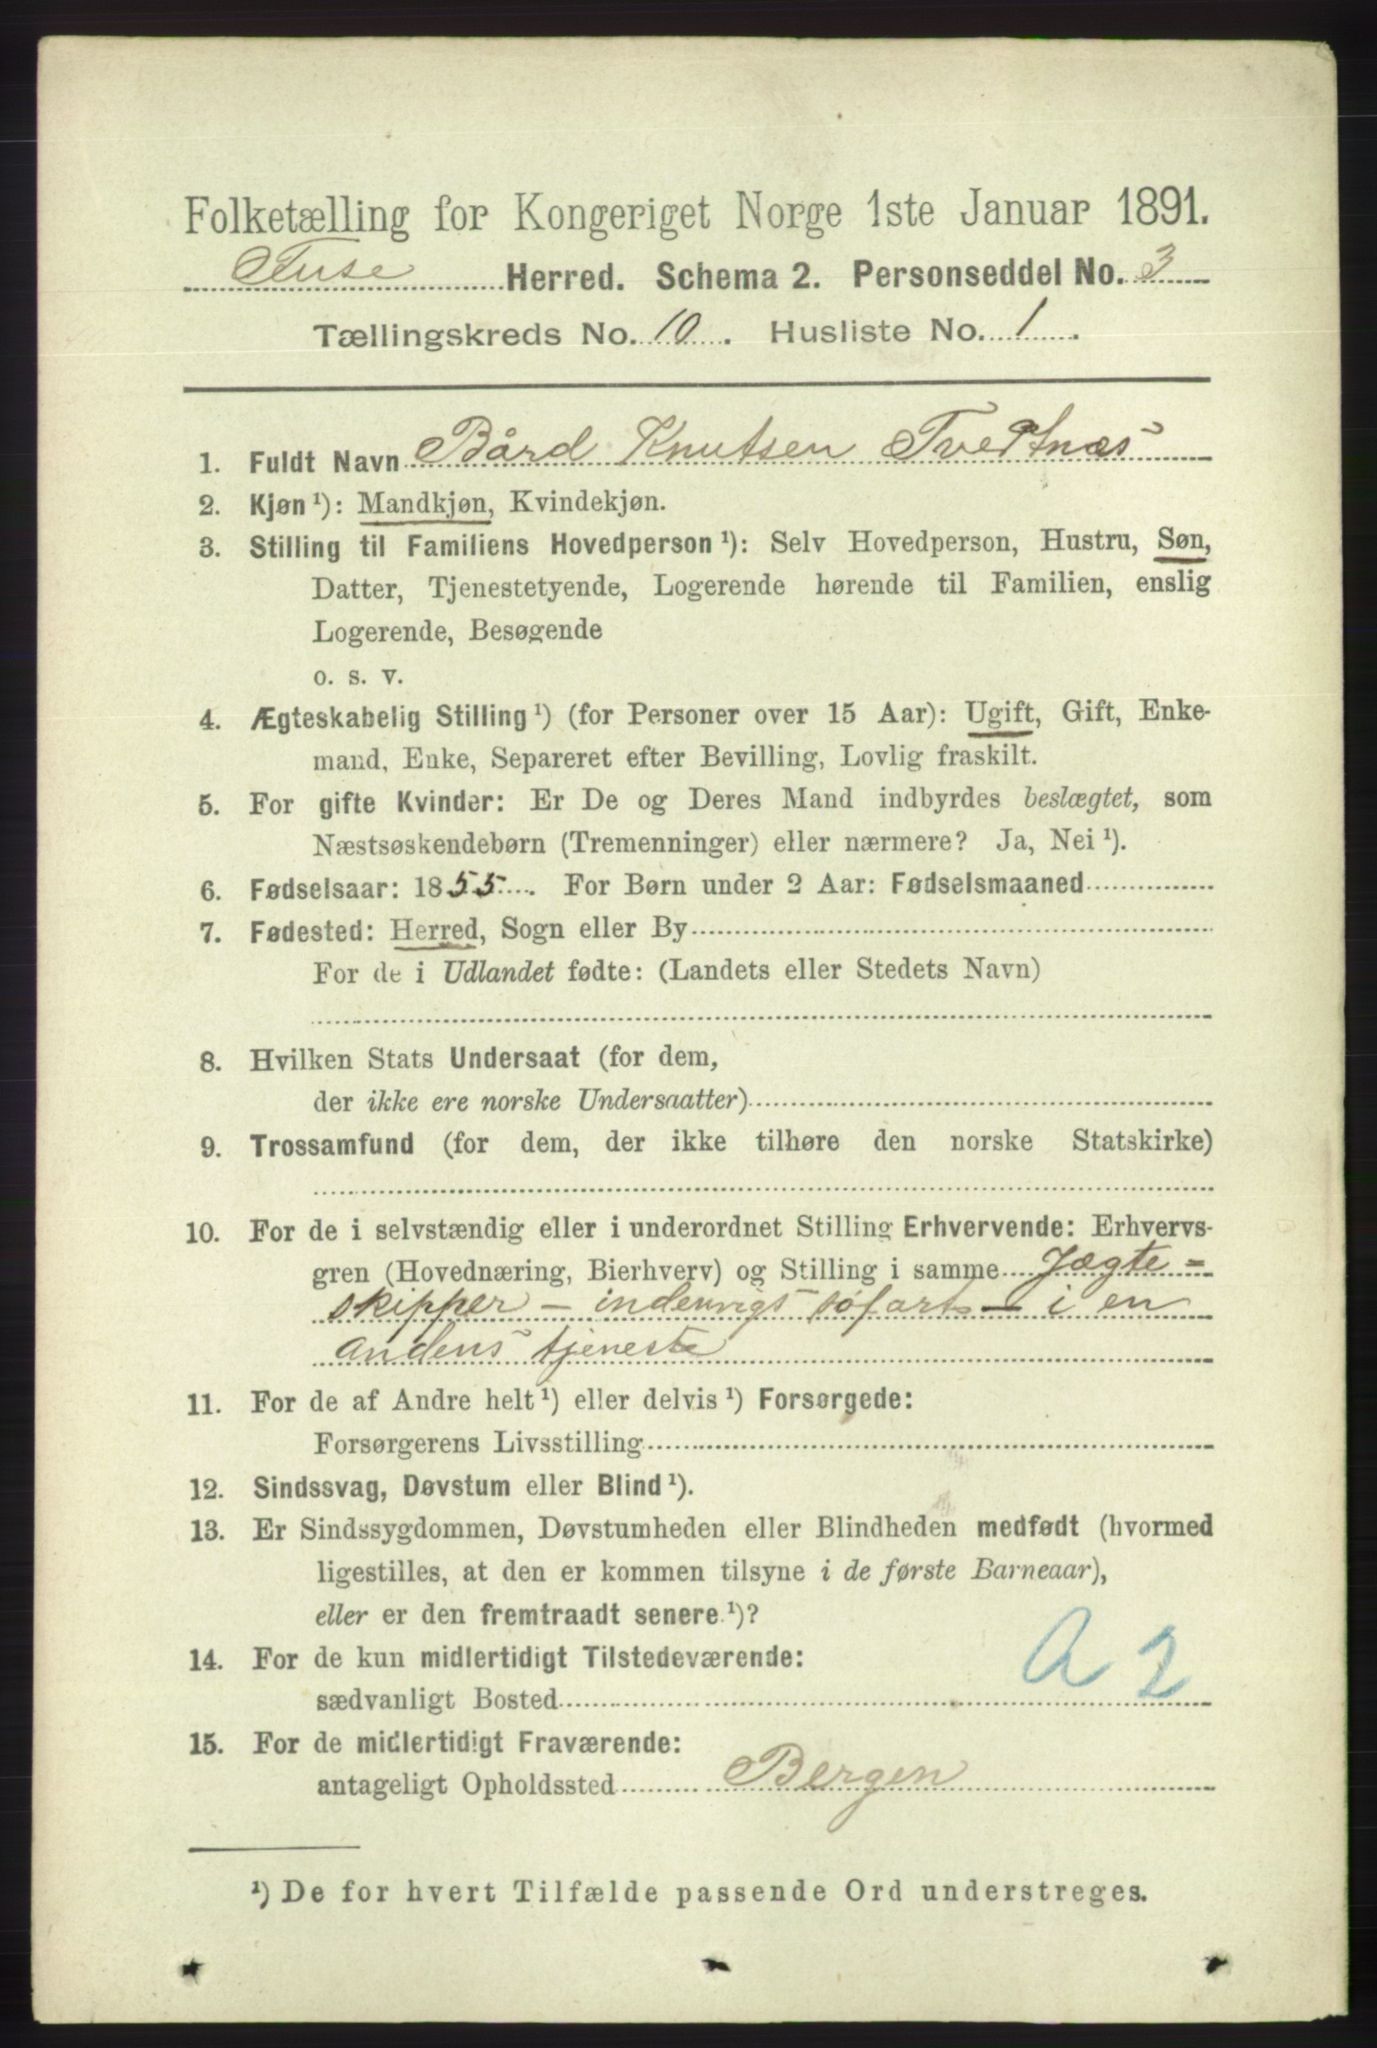 Folketælling for Kongeriget Norge 1ste Januar 1891.
Fuse Herred. Schema 2. Personseddel No. 3
Tællingskreds No. 10. Husliste No. 1.
1. Fuldt Navn Bård Knutsen Tvedtnæs
2. Kjøn ¹): Mandkjøn, Kvindekjøn.
3. Stilling til Familiens Hovedperson ¹): Selv Hovedperson, Hustru, Søn,
Datter, Tjenestetyende, Logerende hørende til Familien, enslig
Logerende, Besøgende
o. s. v.
4. Ægteskabelig Stilling ¹) (for Personer over 15 Aar): Ugift, Gift, Enke-
mand, Enke, Separeret efter Bevilling, Lovlig fraskilt.
5. For gifte Kvinder: Er De og Deres Mand indbyrdes beslægtet, som
Næstsøskendebørn (Tremenninger) eller nærmere? Ja, Nei ¹).
6. Fødselsaar: 1855. For Børn under 2 Aar: Fødselsmaaned
7. Fødested: Herred, Sogn eller By
For de i Udlandet fødte: (Landets eller Stedets Navn)
8. Hvilken Stats Undersaat (for dem,
der ikke ere norske Undersaatter)
9. Trossamfund (for dem, der ikke tilhøre den norske Statskirke)
10. For de i selvstændig eller i underordnet Stilling Erhvervende: Erhvervs-
gren (Hovednæring, Bierhverv) og Stilling i samme Jægte-
skipper - indenrigs søfart - i en
andens tjeneste
11. For de af Andre helt ¹) eller delvis ¹) Forsørgede:
Forsørgerens Livsstilling
12. Sindssvag, Døvstum eller Blind ¹).
13. Er Sindssygdommen, Døvstumheden eller Blindheden medfødt (hvormed
ligestilles, at den er kommen tilsyne i de første Barneaar),
eller er den fremtraadt senere ¹)?
14. For de kun midlertidigt Tilstedeværende:
sædvanligt Bosted
a 2
15. For de midlertidigt Fraværende:
antageligt Opholdssted Bergen
¹) De for hvert Tilfælde passende Ord understreges.